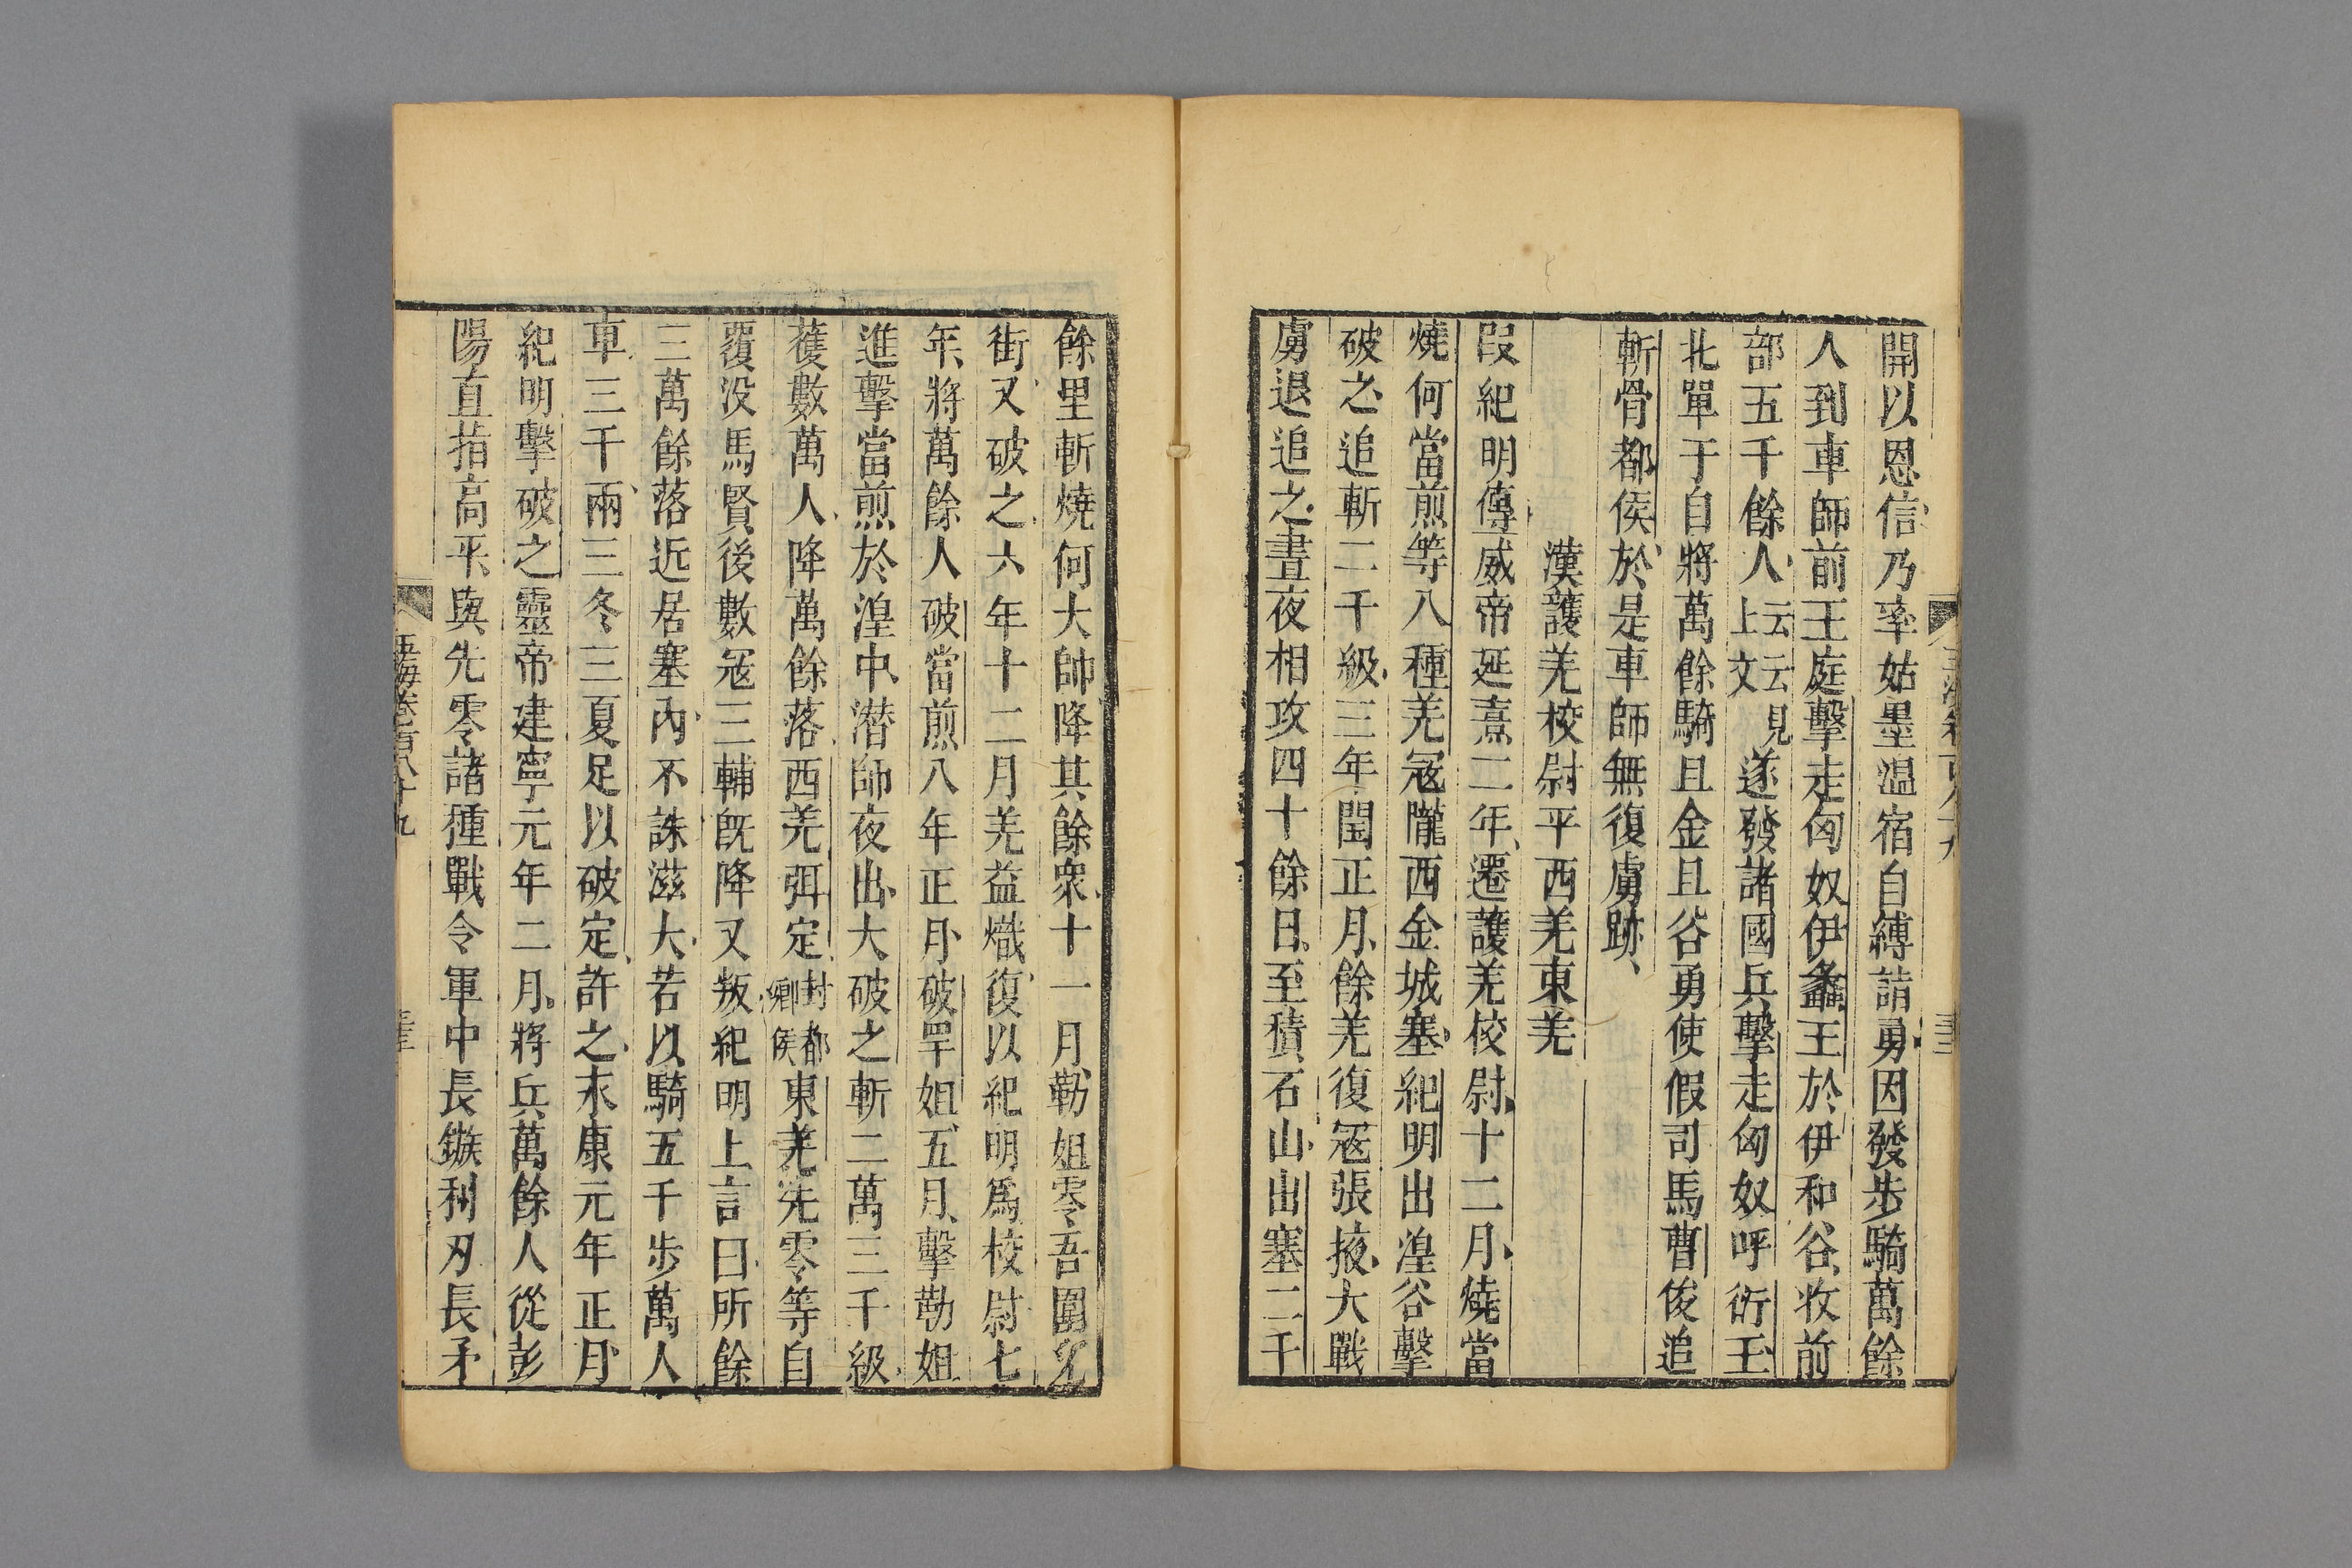 開以恩信乃率姑墨溫宿自縛請勇因發步騎萬餘
人到車師前王庭擊走匈奴伊蠡王於伊和谷收前
部五千餘人云云見上文遂發諸國兵擊走匈奴呼衍王
北單于自將萬餘騎且金且谷勇使假司馬曹俊追
斬骨都侯於是車師無復虜跡
漢護羌校尉平西羌東羌
段紀明傳威帝延熹二年遷護羌校尉十二月燒當
燒何當煎等八種羌冦隴西金城塞紀明出湟谷擊
破之追斬二千級三年閏正月餘羌復冦張掖大戰
虜退追之晝夜相攻四十餘日至積石山出塞二千
餘里斬燒何大帥降其餘衆十一月勒姐零吾圍允
街又破之六年十二月羌益熾復以紀明爲校尉七
年將萬餘人破當煎八年正月破罕姐五月擊勒姐
進擊當煎於湟中潜師夜出大破之斬二萬三千級
獲數萬人降萬餘落西羌弭定封都鄉侯東羌先零等自
覆没馬賢後數冦三輔旣降又叛紀明上言曰所餘
三萬餘落近居塞内不誅滋大若以騎五千步萬人
車三千兩三冬二夏足以破定許之永康元年正月
紀明擊破之靈帝建寧元年二月將兵萬餘人從彭
陽直指高平與先零諸種戰令軍中長鏃利刃長矛
玉海卷一百八十九